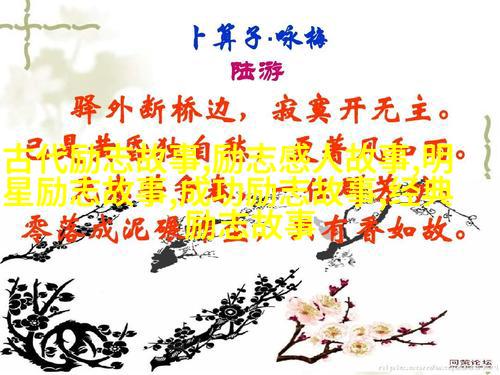 卜算子·咏梅
陆游
驿外断桥边，寂寞开无主。
已是黄昏独自愁，更著风和雨。
古代励志故事,励志感人故事,明
星励志故事,成功励志故事,经典
励志故事
零落成泥碾 有香如故。
论坛